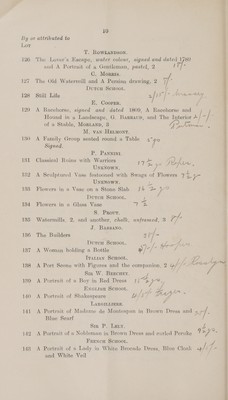 10
By or attributed to
LOT
T. ROWLANDSON.
126 The Lover's Escape, water colour, signed and dated 1798
and A Portrait of a Gentleman, pastel, 2
C. MORRIS.
127 The Old Watermill and A Persian drawing, 2
DUTCH SCHOOL.
128 Still Life
E. COOPER.
129 A Racehorse, signed and dated 1803, A Racehorse and
Hound in a Landscape, G. BARRAUD, and The Interior
of a Stable, MORLAND, 3
M. VAN HELMONT.
130 A Family Group seated round a Table
Signed.
P. PANNINI.
131 Classical Ruins with Warriors
UNKNOWN.
132 A Sculptured Vase festooned with Swags of Flowers
UNKNOWN.
133 Flowers in a Vase on a Stone Slab
DUTCH SCHOOL.
134 Flowers in a Glass Vase
S. PROUT.
135 Watermills, 2, and another, chalk, unframed, 3
J.
136 The Builders
DUTCH SCHOOL.
137 A Woman holding a Bottle
ITALIAN SCHOOL.
138 A Port Scene with Figures and the companion, 2
SIR W. BEECHEY.
139 A Portrait of a Boy in Red Dress
ENGLISH SCHOOL.
140 A Portrait of Shakespeare
LARGILLIERE.
141 A Portrait of Madame de Montespan in Brown Dress and
Blue Scarf
SIR P. LELY.
142 A Portrait of a Nobleman in Brown Dress and curled Peruke
FRENCH SCHOOL.
143 A Portrait of a Lady in White Brocade Dress, Blue Cloak
and White Veil